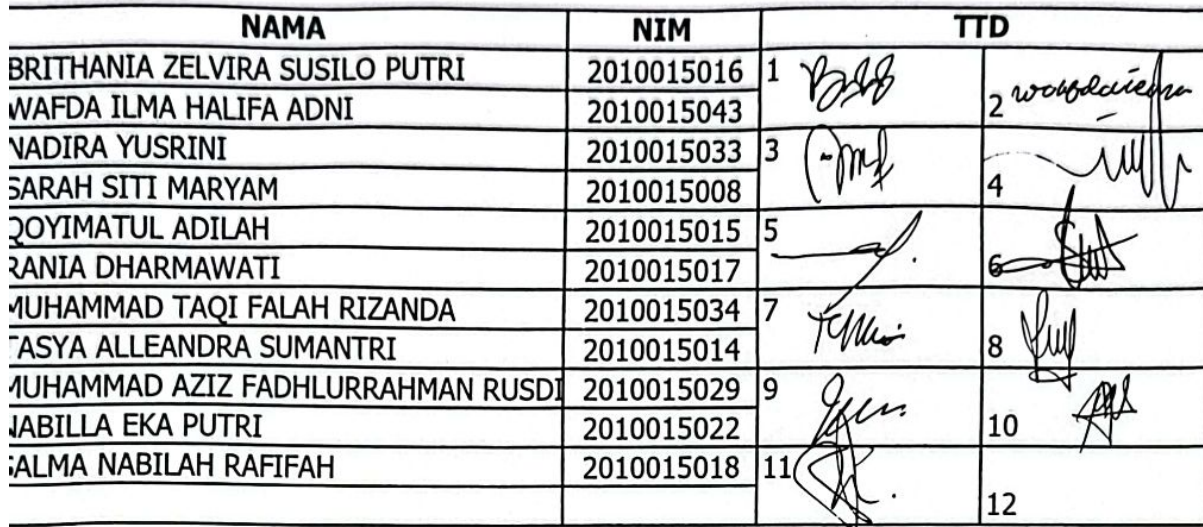 NAMA NIM TTD
BRITHANIA ZELVIRA SUSILO PUTRI 2010015016 1
WAFDA ILMA HALIFA ADNI 2010015043 2
NADIRA YUSRINI 2010015033 3
SARAH SITI MARYAM 2010015008 4
QOYIMATUL ADILAH 2010015015 5
RANIA DHARMAWATI 2010015017 6
MUHAMMAD TAQI FALAH RIZANDA 2010015034 7
TASYA ALLEANDRA SUMANTRI 2010015014 8
MUHAMMAD AZIZ FADHLURRAHMAN RUSDI 2010015029 9
NABILLA EKA PUTRI 2010015022 10
SALMA NABILAH RAFIFAH 2010015018 11
12